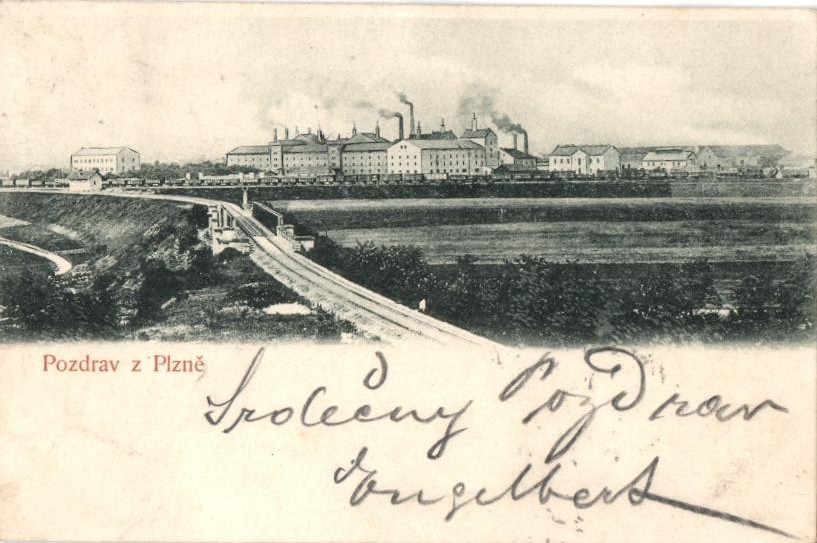 Pozdrav z Plzně
Srdečny Pozdrav
Engelbert